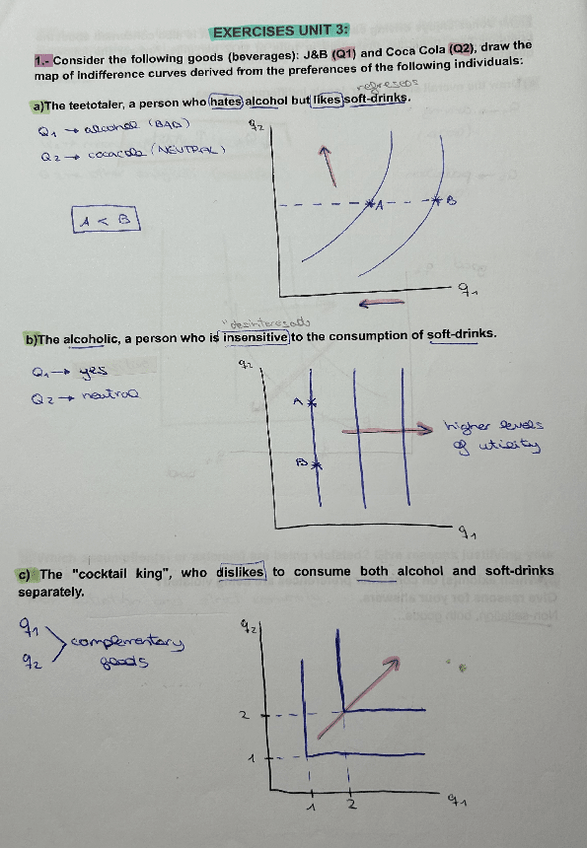 EXERCISES UNIT 3:
1.- Consider the following goods (beverages): J&B (Q1) and Coca Cola (Q2), draw the
map of indifference curves derived from the preferences of the following individuals:
refrescos
a)The teetotaler, a person who hates alcohol but likes soft-drinks.
Q1 → alcohol (BAD)
Q2 → cocacola (NEUTRAL)
A < B
q2
A
B
q1
"desinteresado
b)The alcoholic, a person who is insensitive to the consumption of soft-drinks.
Q1 → yes
Q2 → neutral
q2
A
B
higher levels
of utility
q1
c) The "cocktail king", who dislikes to consume both alcohol and soft-drinks
separately.
q1
q2
complementary
goods
q2
2
1
1 2
q1